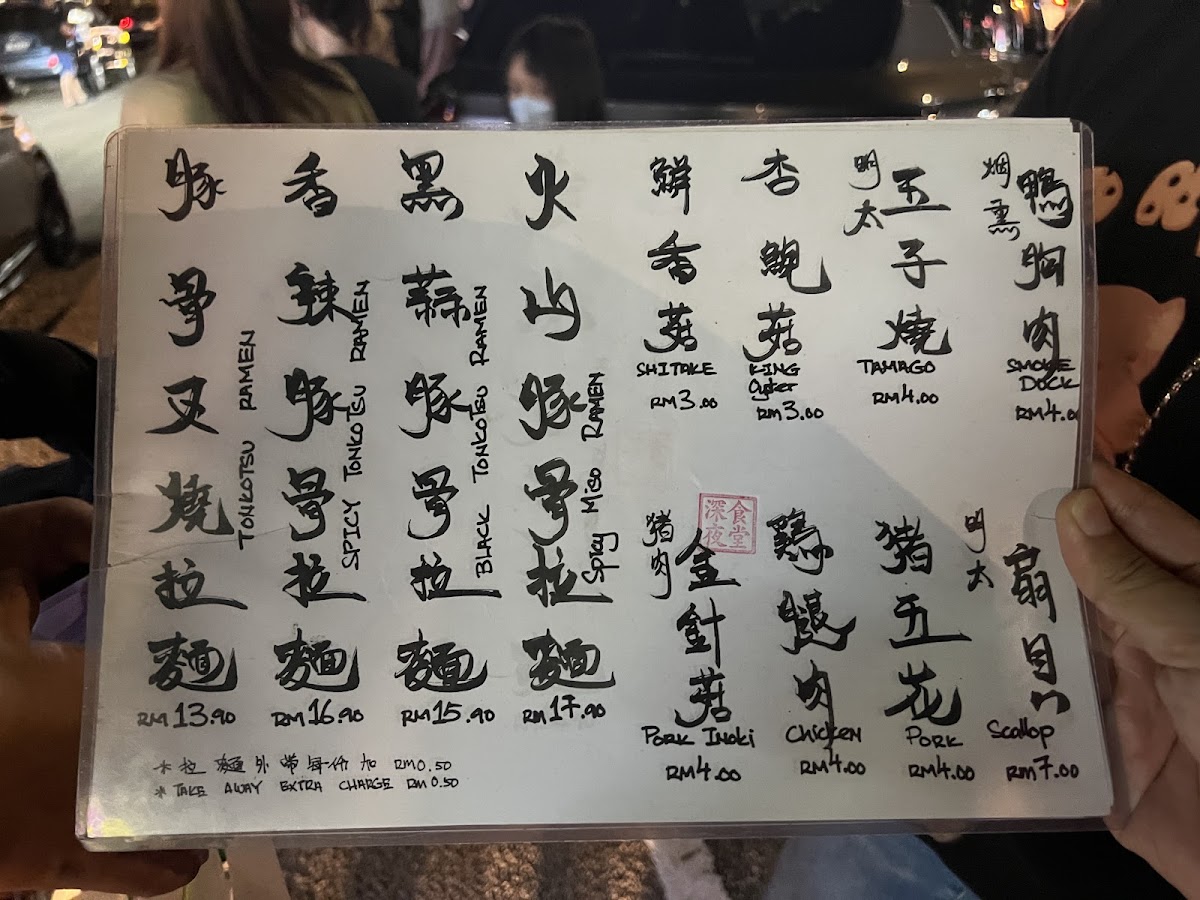 豚骨叉燒拉麵
TONKOTSU RAMEN
RM13.90
香辣豚骨拉麵
SPICY TONKOTSU RAMEN
RM16.90
黑蒜豚骨拉麵
BLACK TONKOTSU RAMEN
RM15.90
火山豚骨拉麵
Spicy Miso RAMEN
RM17.90
*拉麵外帶每份加 RM0.50
*TAKE AWAY EXTRA CHARGE RM0.50
鮮香菇
SHITAKE
RM3.00
杏鮑菇
KING
Oyster
RM3.00
明太
玉子燒
TAMAGO
RM4.00
烟熏
鴨胸肉
SMOKE
DOCK
RM4.00
深夜食堂
猪肉
金針菇
PORK INOKI
RM4.00
鷄腿肉
CHICKEN
RM4.00
猪五花
PORK
RM4.00
明太
扇貝
Scallop
RM7.00